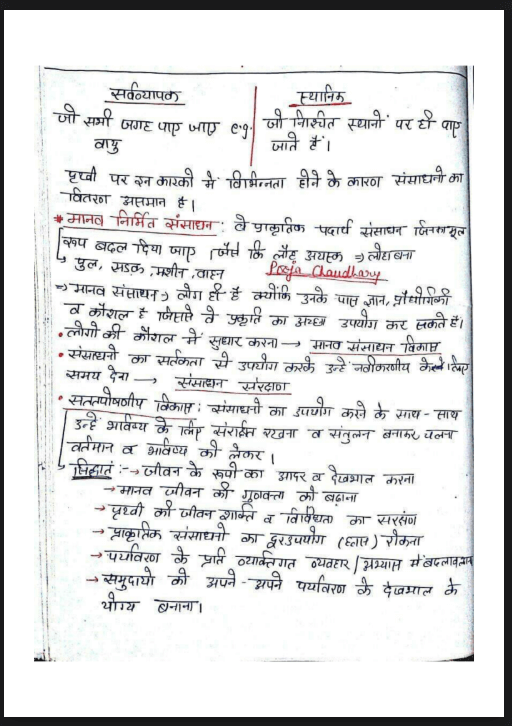 सर्वव्यापक
जो सभी जगह पाए जाए e.g.
वायु
स्थानिक
जो निश्चित स्थानों पर ही पाए
जाते हैं।
पृथ्वी पर इन कारकों में विभिन्नता होने के कारण संसाधनों का
वितरण असमान है।
* मानव निर्मित संसाधन : वे प्राकृतिक पदार्थ संसाधन जिनका मूल
रूप बदल दिया जाए। जैसे कि लौह अयस्क ⇒ लोहा बना
पुल, सड़क, मशीन, वाहन Pooja Chaudhary
⇒ मानव संसाधन ⇒ लोग ही है क्योंकि उनके पास ज्ञान, प्रौद्योगिकी
व कौशल है जिससे वे प्रकृति का अच्छा उपयोग कर सकते है।
• लोगों की कौशल में सुधार करना → मानव संसाधन विकास
• संसाधनों का सर्तकता से उपयोग करके उन्हें नवीकरणीय के लिए
समय देना → संसाधन संरक्षण
• सततपोषणीय विकास : संसाधनों का उपयोग करने के साथ-साथ
उन्हें भविष्य के लिए संरक्षित रखना व संतुलन बनाकर चलना
वर्तमान व भविष्य को लेकर।
सिद्धांत :- → जीवन के रूपों का आदर व देखभाल करना
→ मानव जीवन की गुणवत्ता को बढ़ाना
→ पृथ्वी की जीवन शक्ति व विविधता का सरक्षण
→ प्राकृतिक संसाधनों का दुरउपयोग (ह्रास) रोकना
→ पर्यावरण के प्रति व्यक्तिगत व्यवहार / अभ्यास में बदलाव लाना
→ समुदायों को अपने-अपने पर्यावरण के देखभाल के
योग्य बनाना।